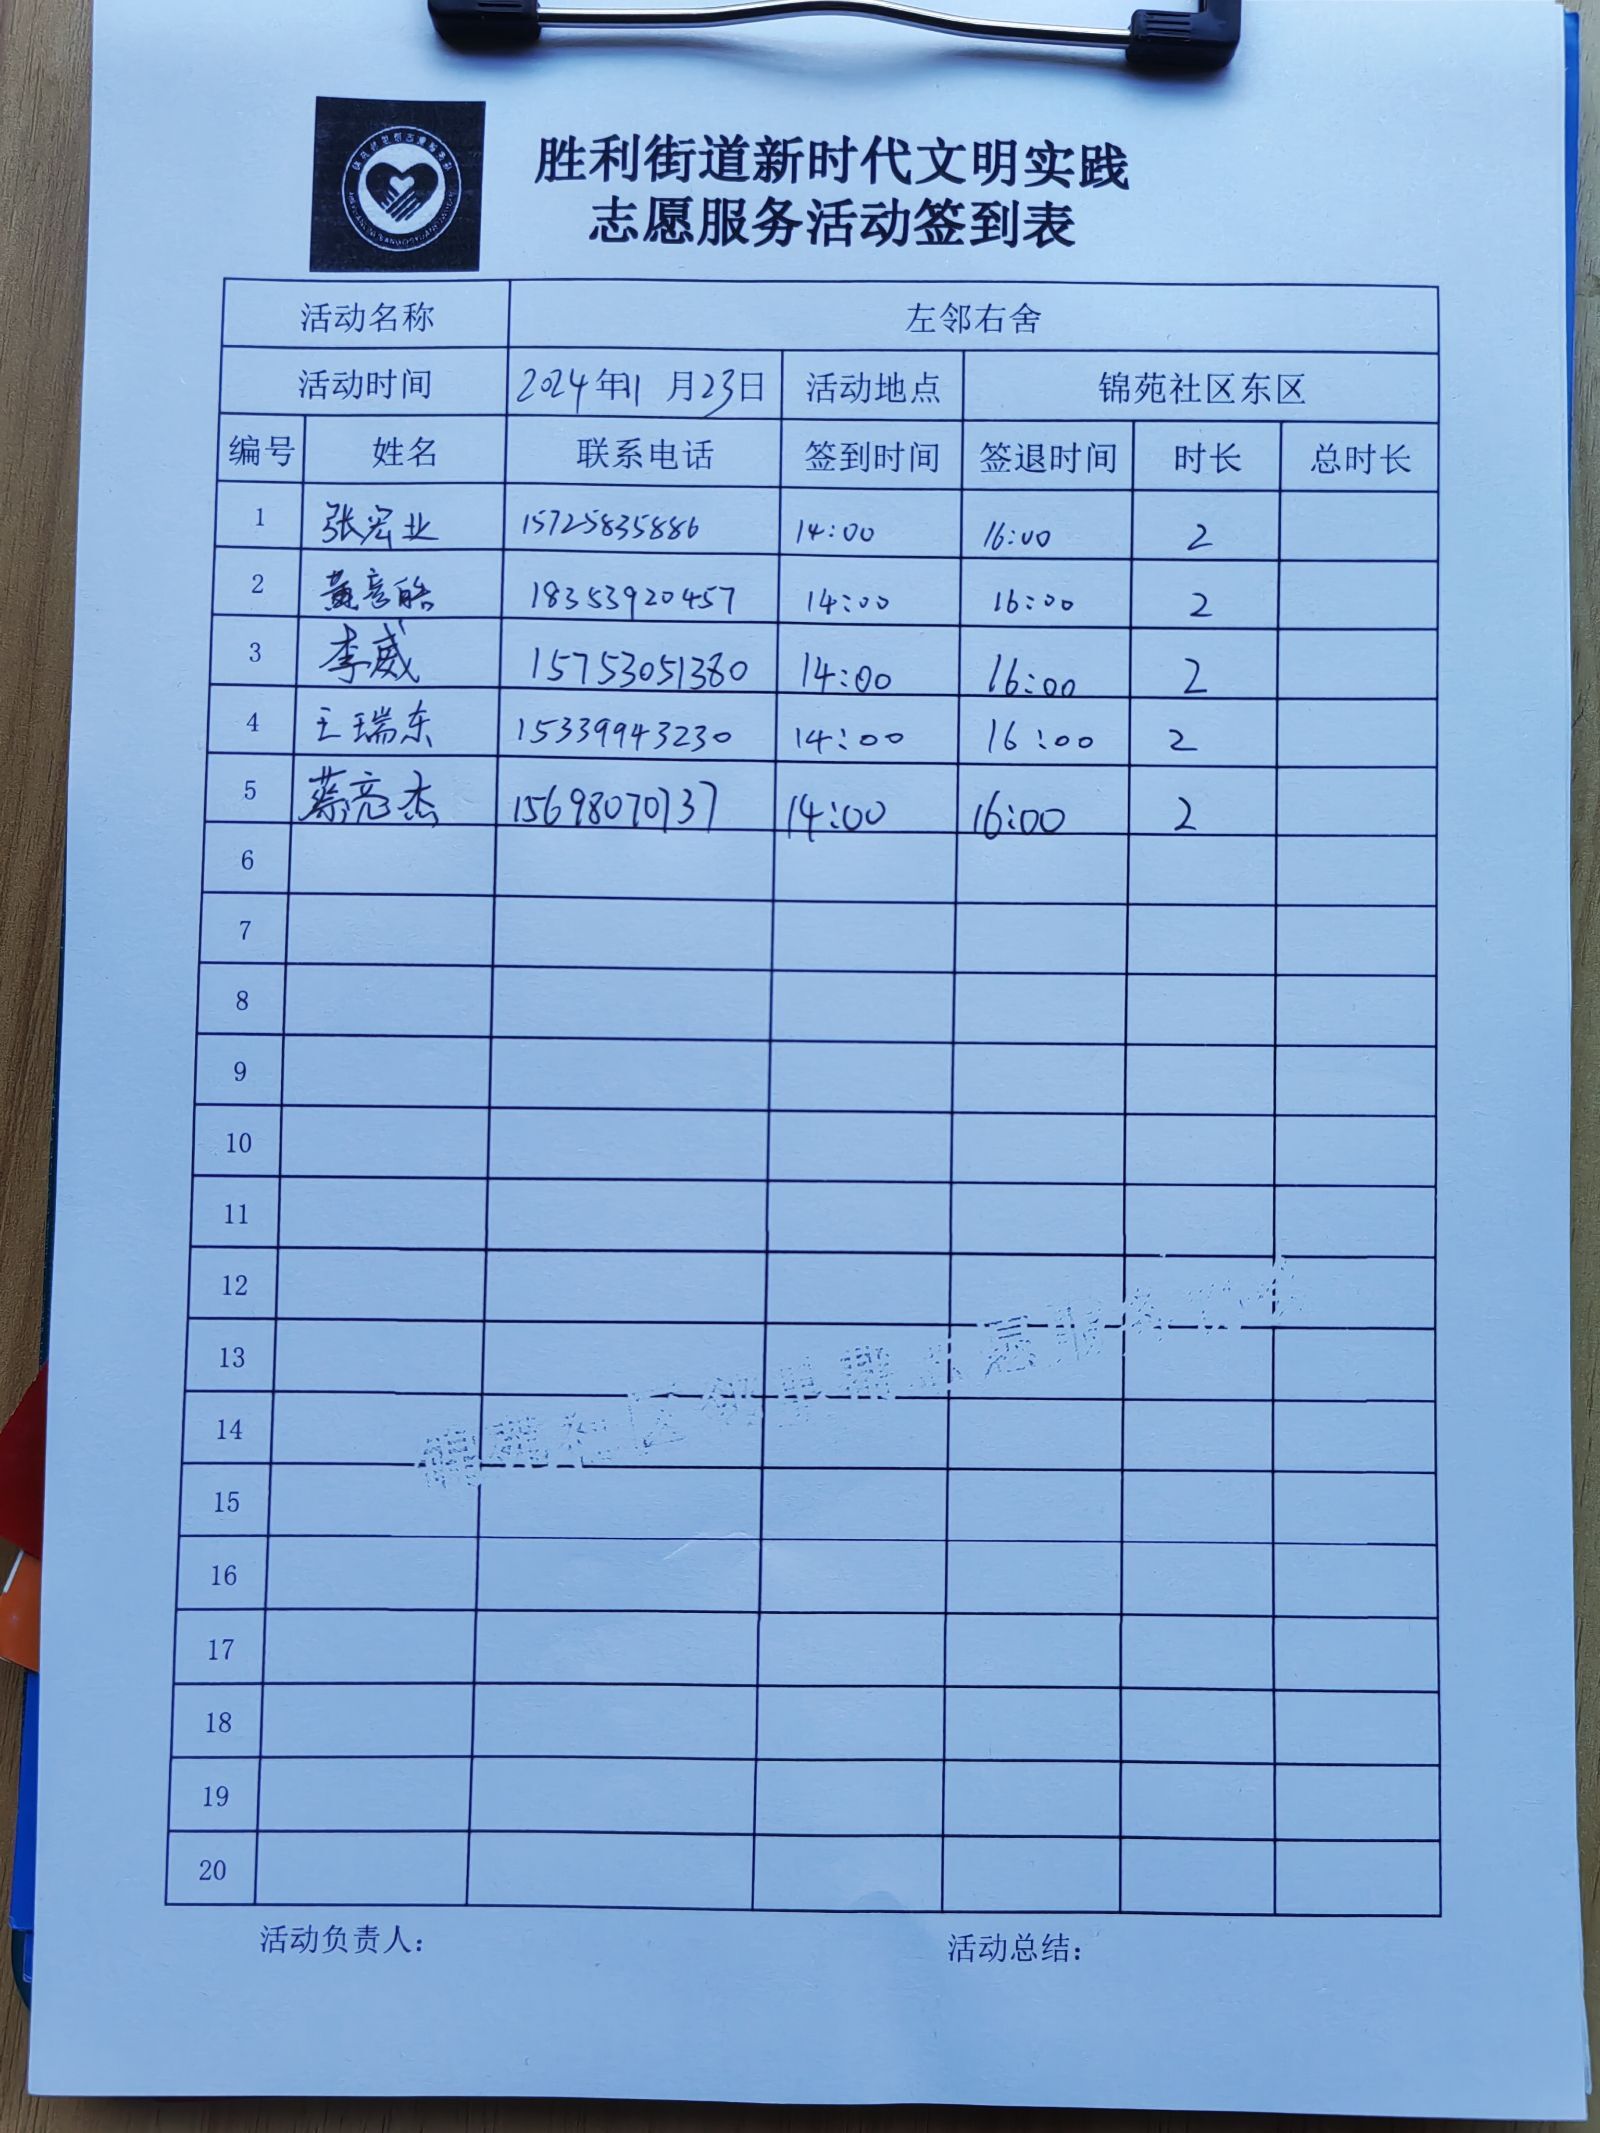 胜利街道新时代文明实践
志愿服务活动签到表
活动名称 左邻右舍
活动时间 2024年11月23日 活动地点 锦苑社区东区
编号 姓名 联系电话 签到时间 签退时间 时长 总时长
1 张宏业 15725835886 14:00 16:00 2
2 黄彦皓 18353920457 14:00 16:00 2
3 李威 15753051380 14:00 16:00 2
4 王瑞东 15339943230 14:00 16:00 2
5 蔡亮杰 15698070737 14:00 16:00 2
6
7
8
9
10
11
12
13
14
15
16
17
18
19
20
锦苑社区邻里帮志愿服务
活动负责人： 活动总结：